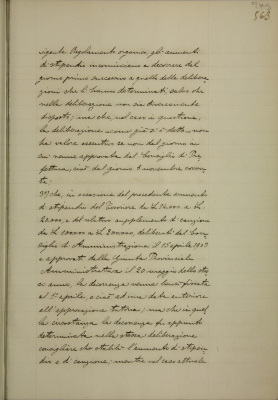 563
vigente Regolamento organico gli aumenti
di stipendio incominciano a decorrere dal
giorno primo successivo a quello delle delibera-
zioni che li hanno determinati, salvo che
nella deliberazione non sia diversamente
disposto; ma che, nel caso in questione,
la deliberazione come già si è detto non
ha valore esecutivo se non dal giorno in
cui venne approvata dal Consiglio di Pre-
fettura, cioè dal giorno 5 novembre corren-
te;
che, in occasione del precedente aumento
di stipendio del Tesoriere da L.
a L. e del relativo supplemento di cauzione
da L. a L. deliberati dal Con-
siglio di Amministrazione il 15 aprile 1903
e approvati dalla Giunta Provinciale
Amministrativa il 20 maggio dello stes-
so anno, la decorrenza venne bensì fissata
al 1° aprile, e cioè ad una data anteriore
all'approvazione tutoria; ma che in quel-
la circostanza la decorrenza fu appunto
determinata nella stessa deliberazione
consigliare che stabilì l'aumento di stipen-
dio e di cauzione; mentre nel caso attuale